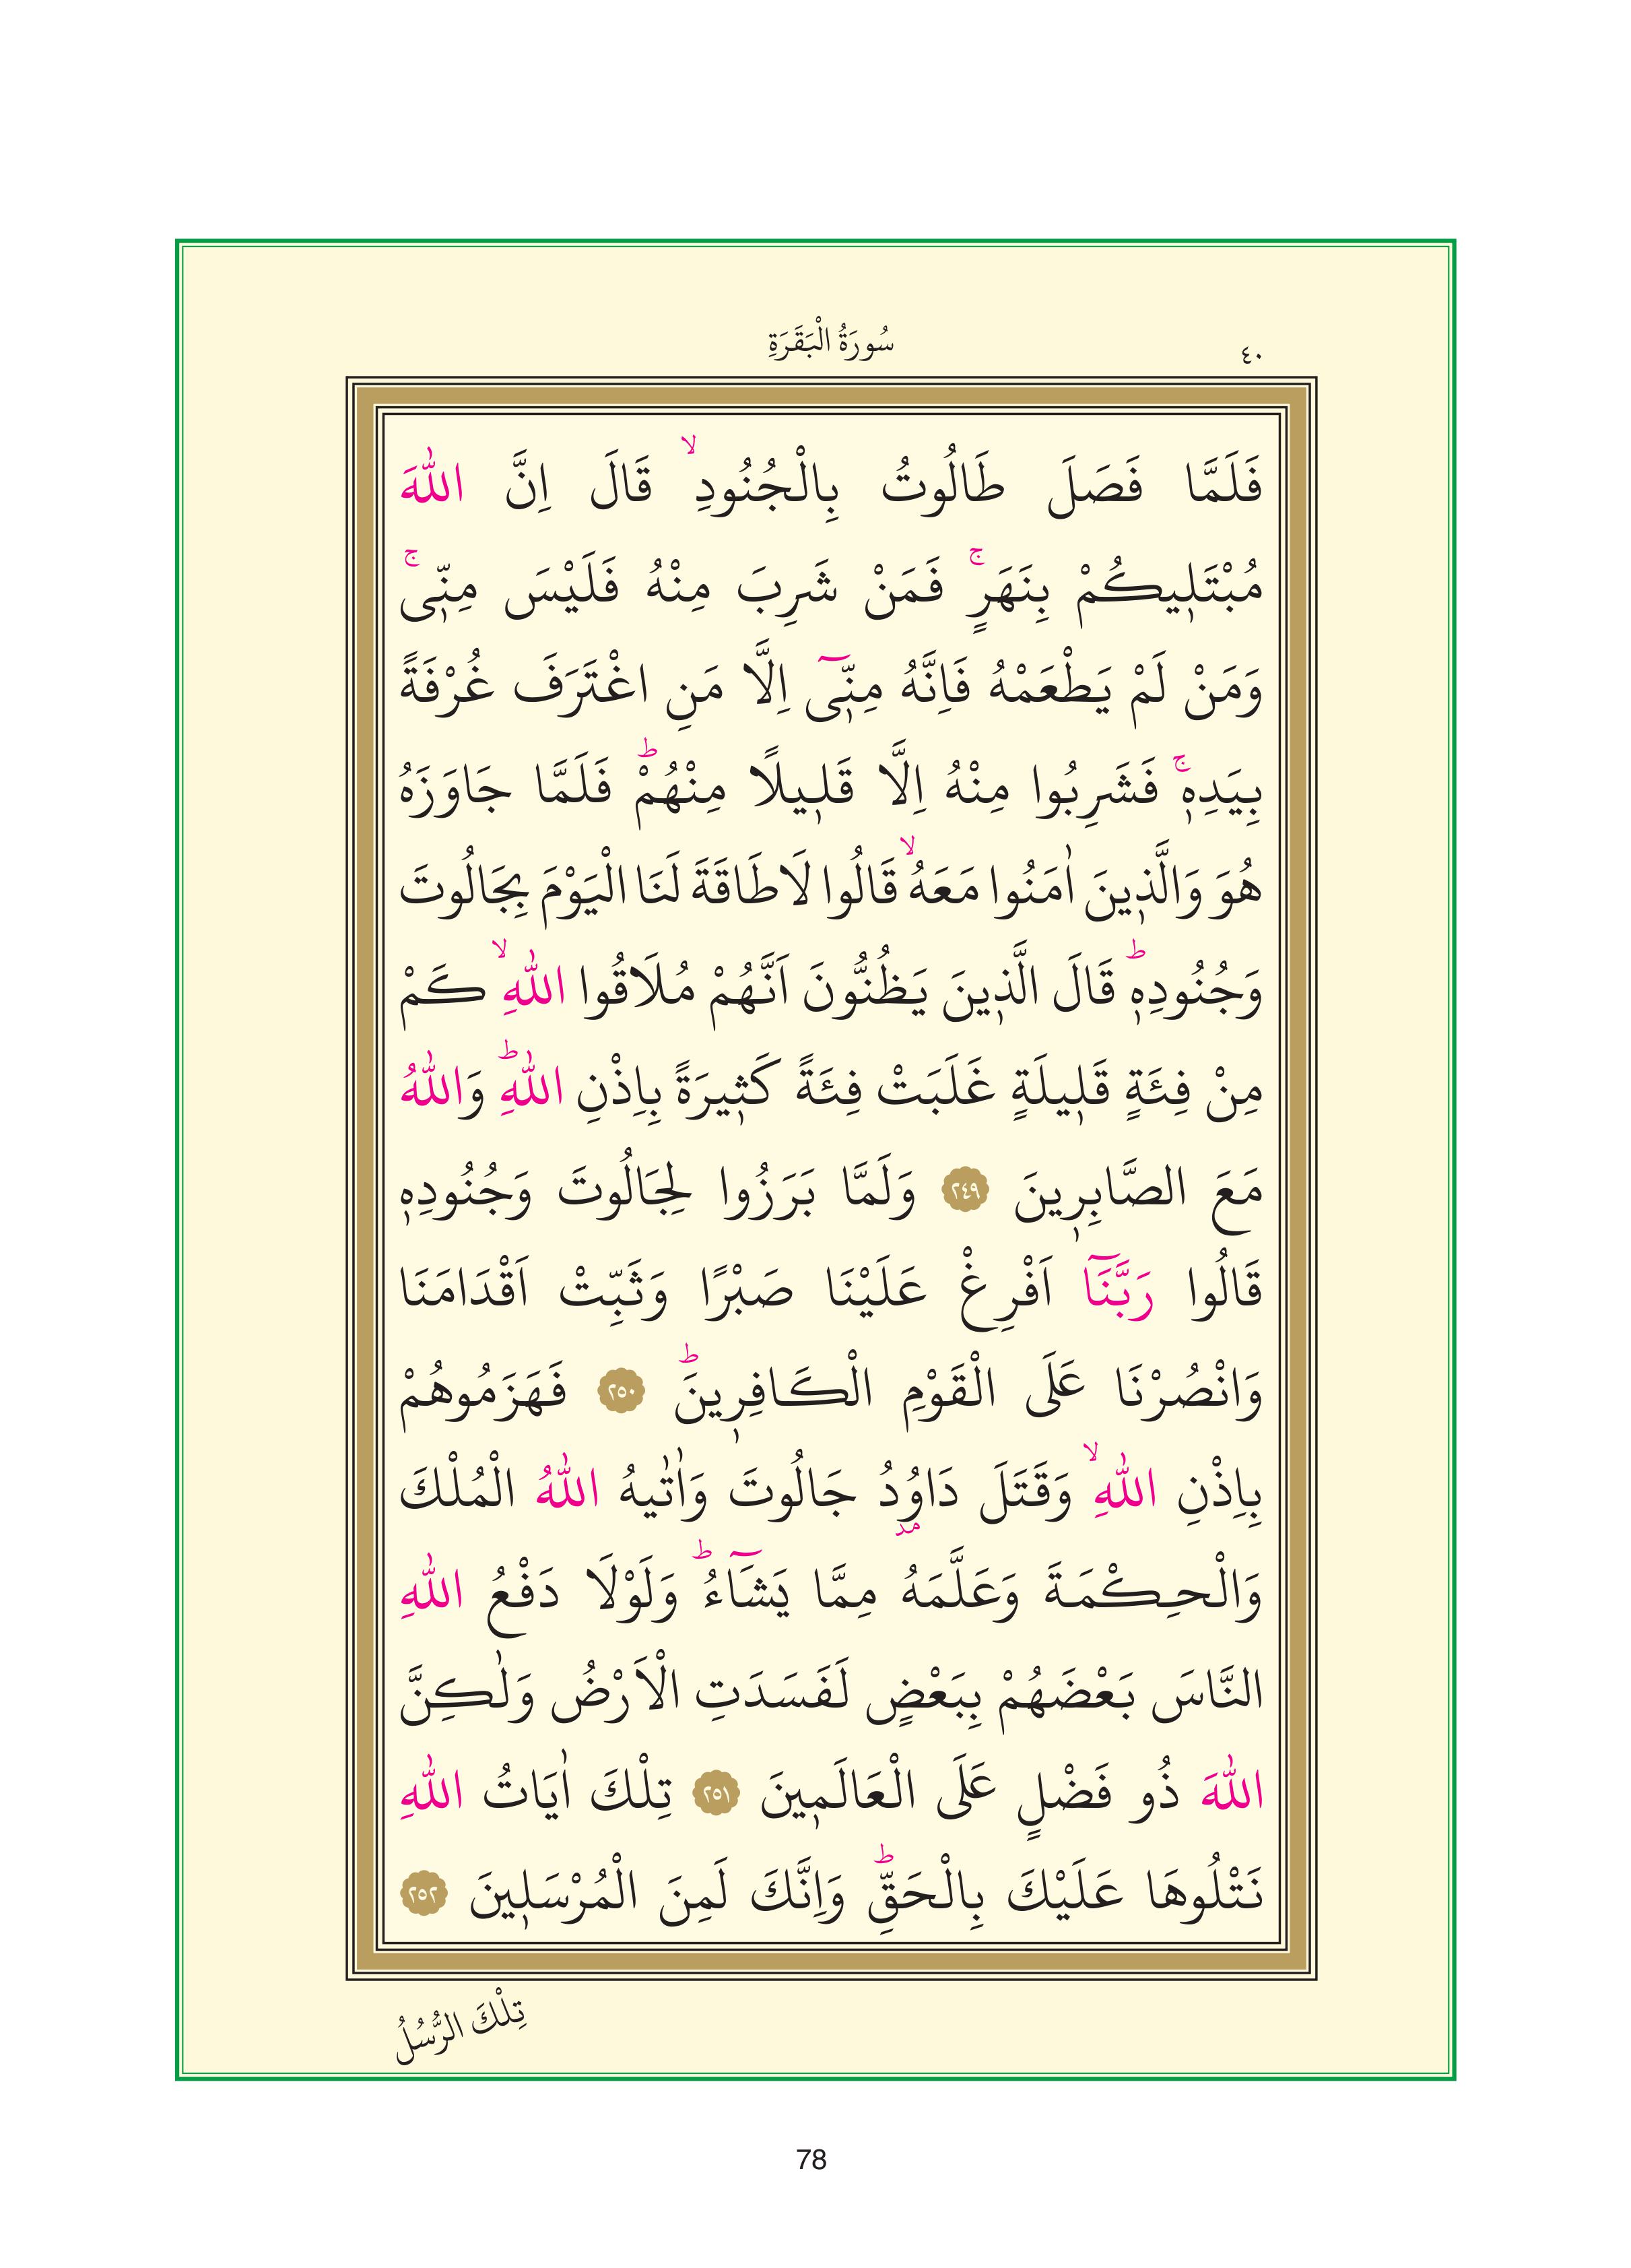 ٤٠
سُورَةُ الْبَقَرَةِ
فَلَمَّا فَصَلَ طَالُوتُ بِالْجُنُودِۙ قَالَ اِنَّ اللّٰهَ
مُبْتَلٖيكُمْ بِنَهَرٍۚ فَمَنْ شَرِبَ مِنْهُ فَلَيْسَ مِنّٖىۚ
وَمَنْ لَمْ يَطْعَمْهُ فَاِنَّهُ مِنّٖٓى اِلَّا مَنِ اغْتَرَفَ غُرْفَةً
بِيَدِهٖۚ فَشَرِبُوا مِنْهُ اِلَّا قَلٖيلًا مِنْهُمْؕ فَلَمَّا جَاوَزَهُ
هُوَ وَالَّذٖينَ اٰمَنُوا مَعَهُۙ قَالُوا لَا طَاقَةَ لَنَا الْيَوْمَ بِجَالُوتَ
وَجُنُودِهٖؕ قَالَ الَّذٖينَ يَظُنُّونَ اَنَّهُمْ مُلَاقُوا اللّٰهِۙ كَمْ
مِنْ فِئَةٍ قَلٖيلَةٍ غَلَبَتْ فِئَةً كَثٖيرَةً بِاِذْنِ اللّٰهِؕ وَاللّٰهُ
مَعَ الصَّابِرٖينَ ٢٤٩ وَلَمَّا بَرَزُوا لِجَالُوتَ وَجُنُودِهٖ
قَالُوا رَبَّنَٓا اَفْرِغْ عَلَيْنَا صَبْرًا وَثَبِّتْ اَقْدَامَنَا
وَانْصُرْنَا عَلَى الْقَوْمِ الْكَافِرٖينَؕ ٢٥٠ فَهَزَمُوهُمْ
بِاِذْنِ اللّٰهِۙ وَقَتَلَ دَاوُدُ جَالُوتَ وَاٰتٰيهُ اللّٰهُ الْمُلْكَ
وَالْحِكْمَةَ وَعَلَّمَهُ مِمَّا يَشَٓاءُؕ وَلَوْلَا دَفْعُ اللّٰهِ
النَّاسَ بَعْضَهُمْ بِبَعْضٍ لَفَسَدَتِ الْاَرْضُ وَلٰكِنَّ
اللّٰهَ ذُو فَضْلٍ عَلَى الْعَالَمٖينَ ٢٥١ تِلْكَ اٰيَاتُ اللّٰهِ
نَتْلُوهَا عَلَيْكَ بِالْحَقِّؕ وَاِنَّكَ لَمِنَ الْمُرْسَلٖينَ ٢٥٢
تِلْكَ الرُّسُلُ
78